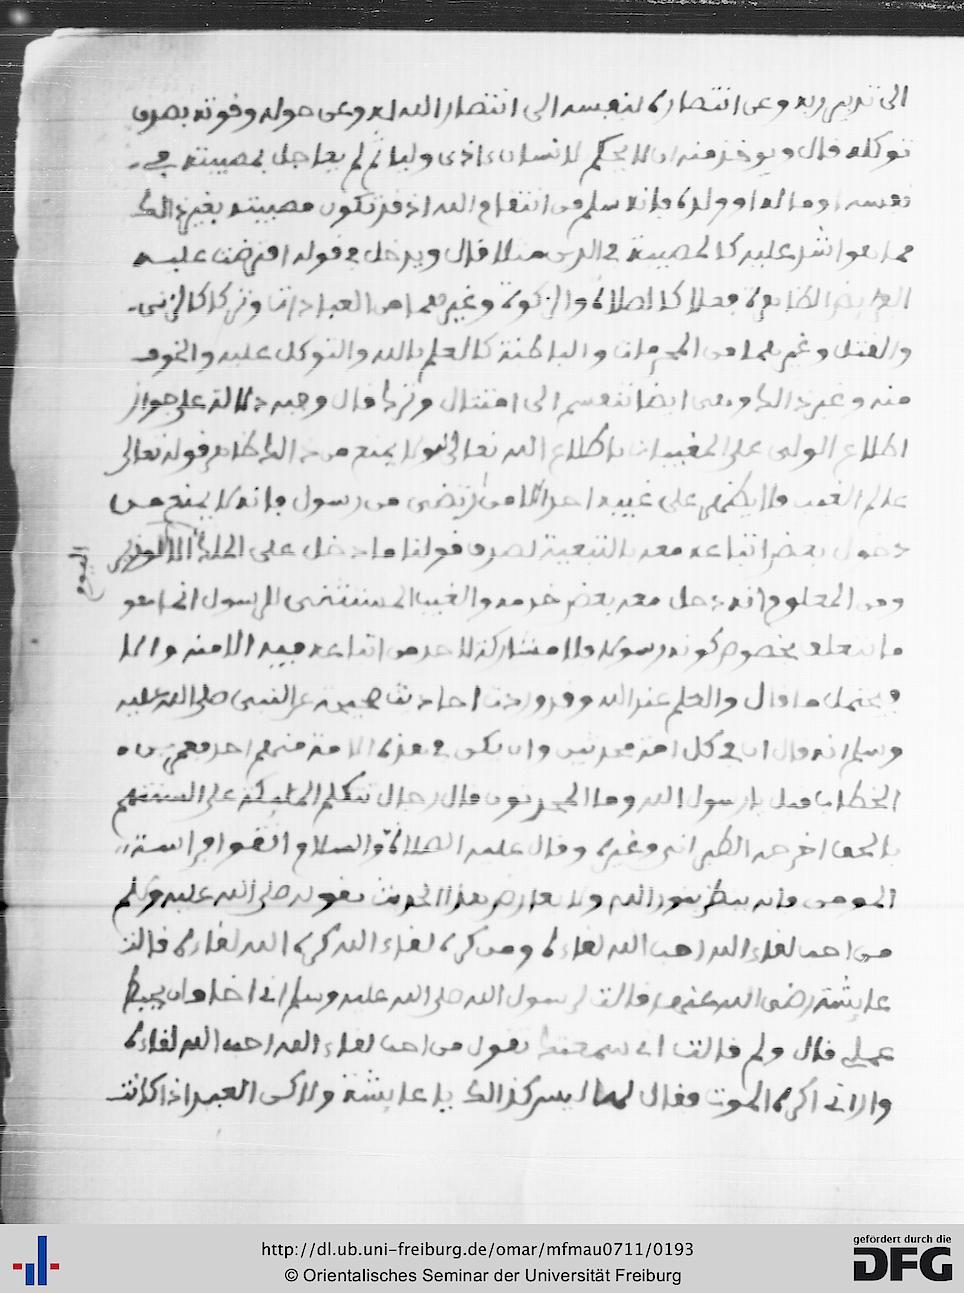 الى تدبير ربه وعن انتصاره لنفسه الى انتصار الله له وعن حوله وقوته بصدق
توكله قال ويوخذ منه ان لا يحكم لانسان ءاذى وليا ثم لم يعاجل بمصيبته في
نفسه او ماله او ولده بانه سلم من انتقام الله اذ قد تكون مصيبته بغير ذالك
مما هو اشد عليه كالمصيبة في الدين مثلا قال ويدخل في قوله افترضت عليه
الفرايض الظاهرة فعلا كالصلاة والزكوة وغيرهما من العبادات وتركا كالزنى
والقتل وغيرهما من المحرمات والباطنة كالعلم بالله والتوكل عليه والخوف
منه وغير ذالك وهى ايضا تنقسم الى افعال وترك قال وفيه دلالة على جواز
اطلاع الولى على المغيبات باطلاع الله تعالى له ولا يمنع من ذالك ظاهر قوله تعالى
عالم الغيب فلا يظهر على غيبه احدا الا من ارتضى من رسول فانه لا يمنع من
دخول بعض اتباعه معه بالتبعية لصدق قولنا ما دخل على الملك الا الوزير
اليوم
ومن المعلوم انه دخل معه بعض خدمه والغيب المستثنى للرسول انما هو
ما يتعلق بخصوص كونه رسولا فلا مشاركة لاحد من اتباعه فيه الا منه والا
فيحتمل ما قال والعلم عند الله وقد وردت احاديث صحيحة عن النبى صلى الله عليه
وسلم انه قال ان في كل امة محدثين وان يكن في هذه الامة منهم احد فعمر بن
الخطاب قيل يا رسول الله وما المحدثون قال رجال تتكلم الملئكة على السنتهم
بالحق اخرجه الطبرانى وغيره وقال عليه الصلاة والسلام اتقوا فراسة
المومن فانه ينظر بنور الله ولا يعارض هذا الحديث بقوله صلى الله عليه وسلم
من احب لقاء الله احب الله لقاءه ومن كره لقاء الله كره الله لقاءه قالت
عايشة رضى الله عنها قالت لرسول الله صلى الله عليه وسلم انى اخاف ان يحبط
عملى قال ولم قالت انى سمعتك تقول من احب لقاء الله احب الله لقاءه
وانى اكره الموت فقال لها ليس كذالك يا عايشة ولاكن العبد اذا كانت
http://dl.ub.uni-freiburg.de/omar/mfmau0711/0193
© Orientalisches Seminar der Universität Freiburg
gefördert durch die
DFG